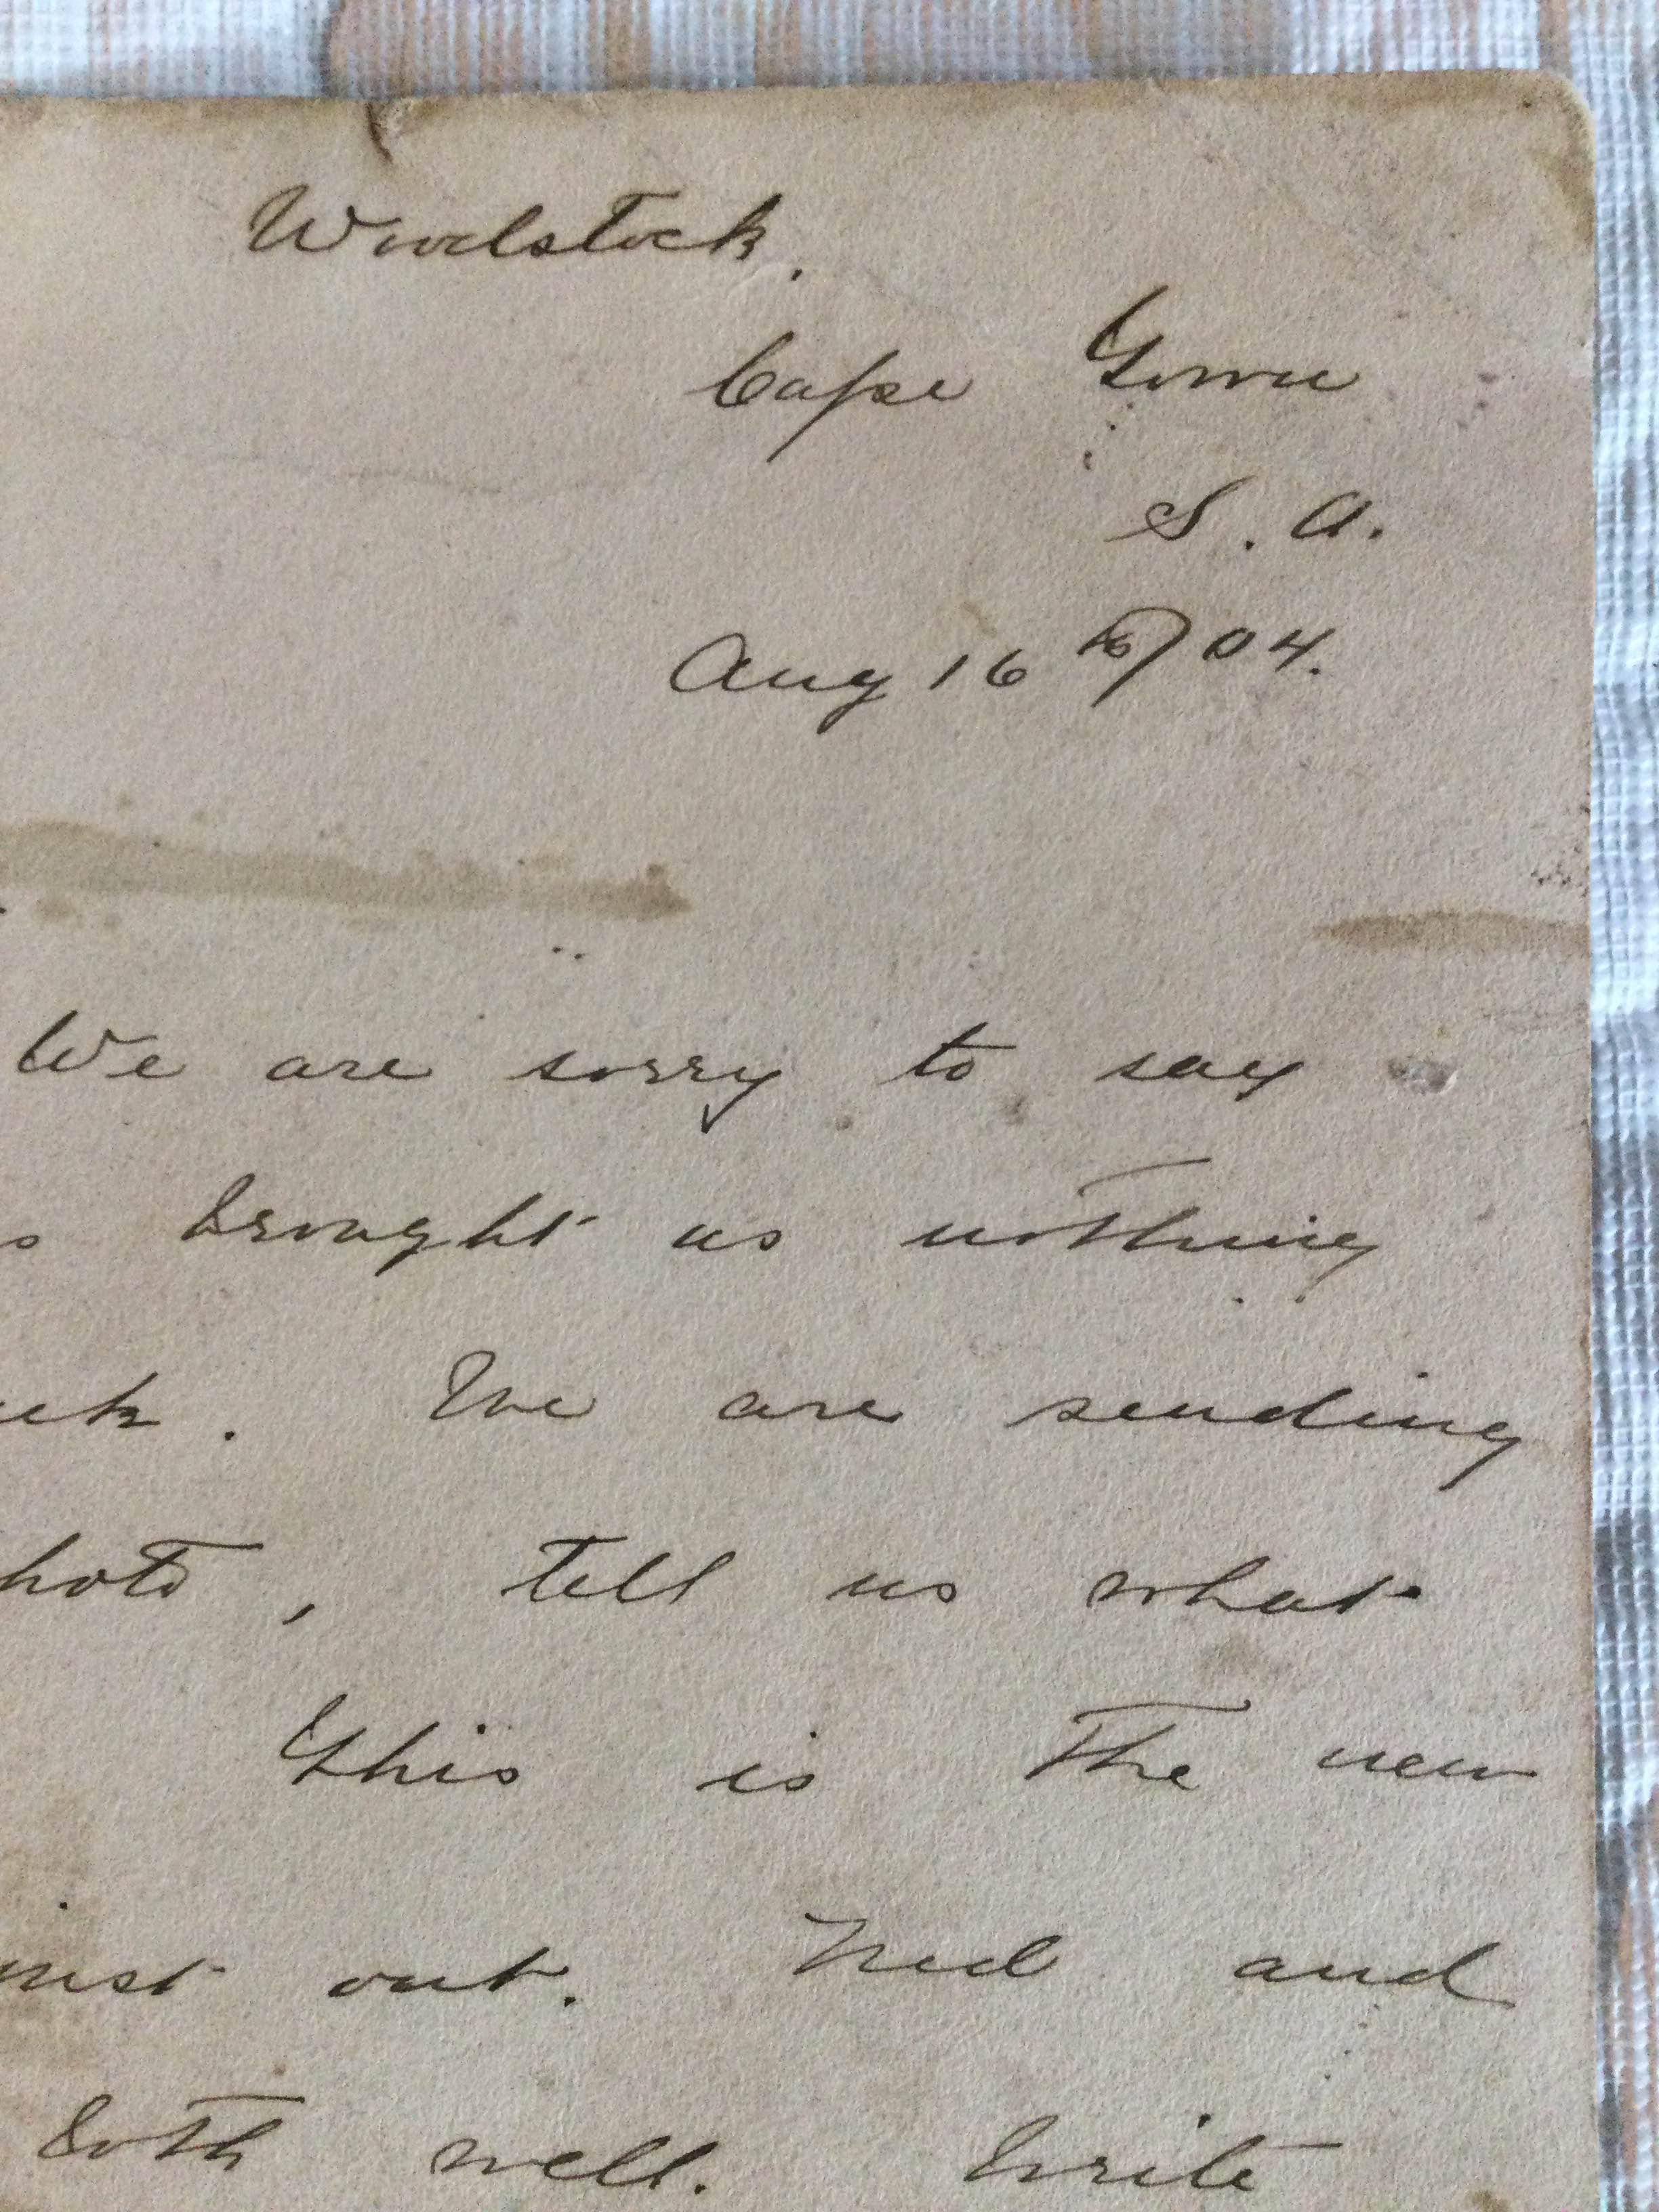 Woodstock.
Cape Town
S. A.
Aug 16th/04.
We are sorry to say
brought us nothing
. We are sending
hoto, tell us what
This is the new
out. Ned and
both well. Write